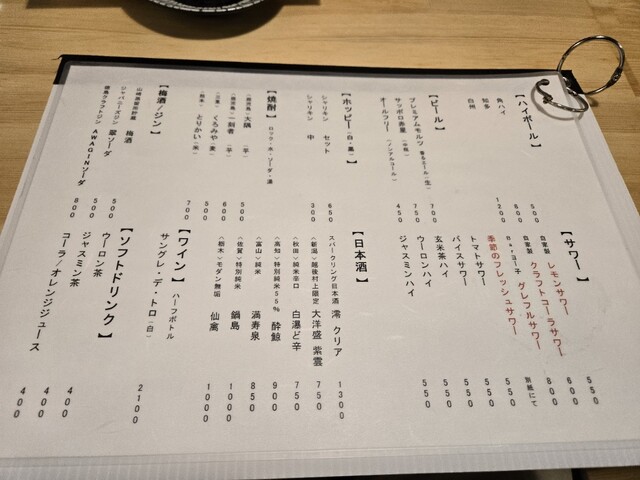 【ハイボール】
角ハイ 500
知多 600
白州 1200
【ビール】
プレミアムモルツ 香るエール(生) 700
サッポロ赤星(中瓶) 750
オールフリー(ノンアルコール) 450
【ホッピー(白・黒)】
シャリキン セット 650
シャリキン 中 300
【焼酎】ロック・水・ソーダ・湯
(鹿児島)大隅(芋) 500
(鹿児島)一刻者(芋) 600
くろみや(麦) 500
(熊本)とりかい(米) 700
【梅酒/ジン】
梅酒 500
ジャパニーズジン 翠ソーダ 500
徳島クラフトジン AWAGINソーダ 800
【サワー】
自家製 レモンサワー 550
自家製 クラフトコーラサワー 600
グレフルサワー 800
季節のフレッシュサワー 別紙にて
トマトサワー 550
バイスサワー 550
玄米茶ハイ 550
ウーロンハイ 550
ジャスミンハイ 550
【日本酒】
スパークリング日本酒 澪 クリア 1300
(新潟)越後村上限定 大洋盛 紫雲 750
(秋田)純米辛口 白瀑ど辛 750
(高知)特別純米55% 酔鯨 900
(富山)純米 満寿泉 850
(佐賀)特別純米 鍋島 1000
(栃木)モダン無垢 仙禽 1000
【ワイン】ハーフボトル
サングレ・デ・トロ(白) 2100
【ソフトドリンク】
ウーロン茶 400
ジャスミン茶 400
コーラ/オレンジジュース 400